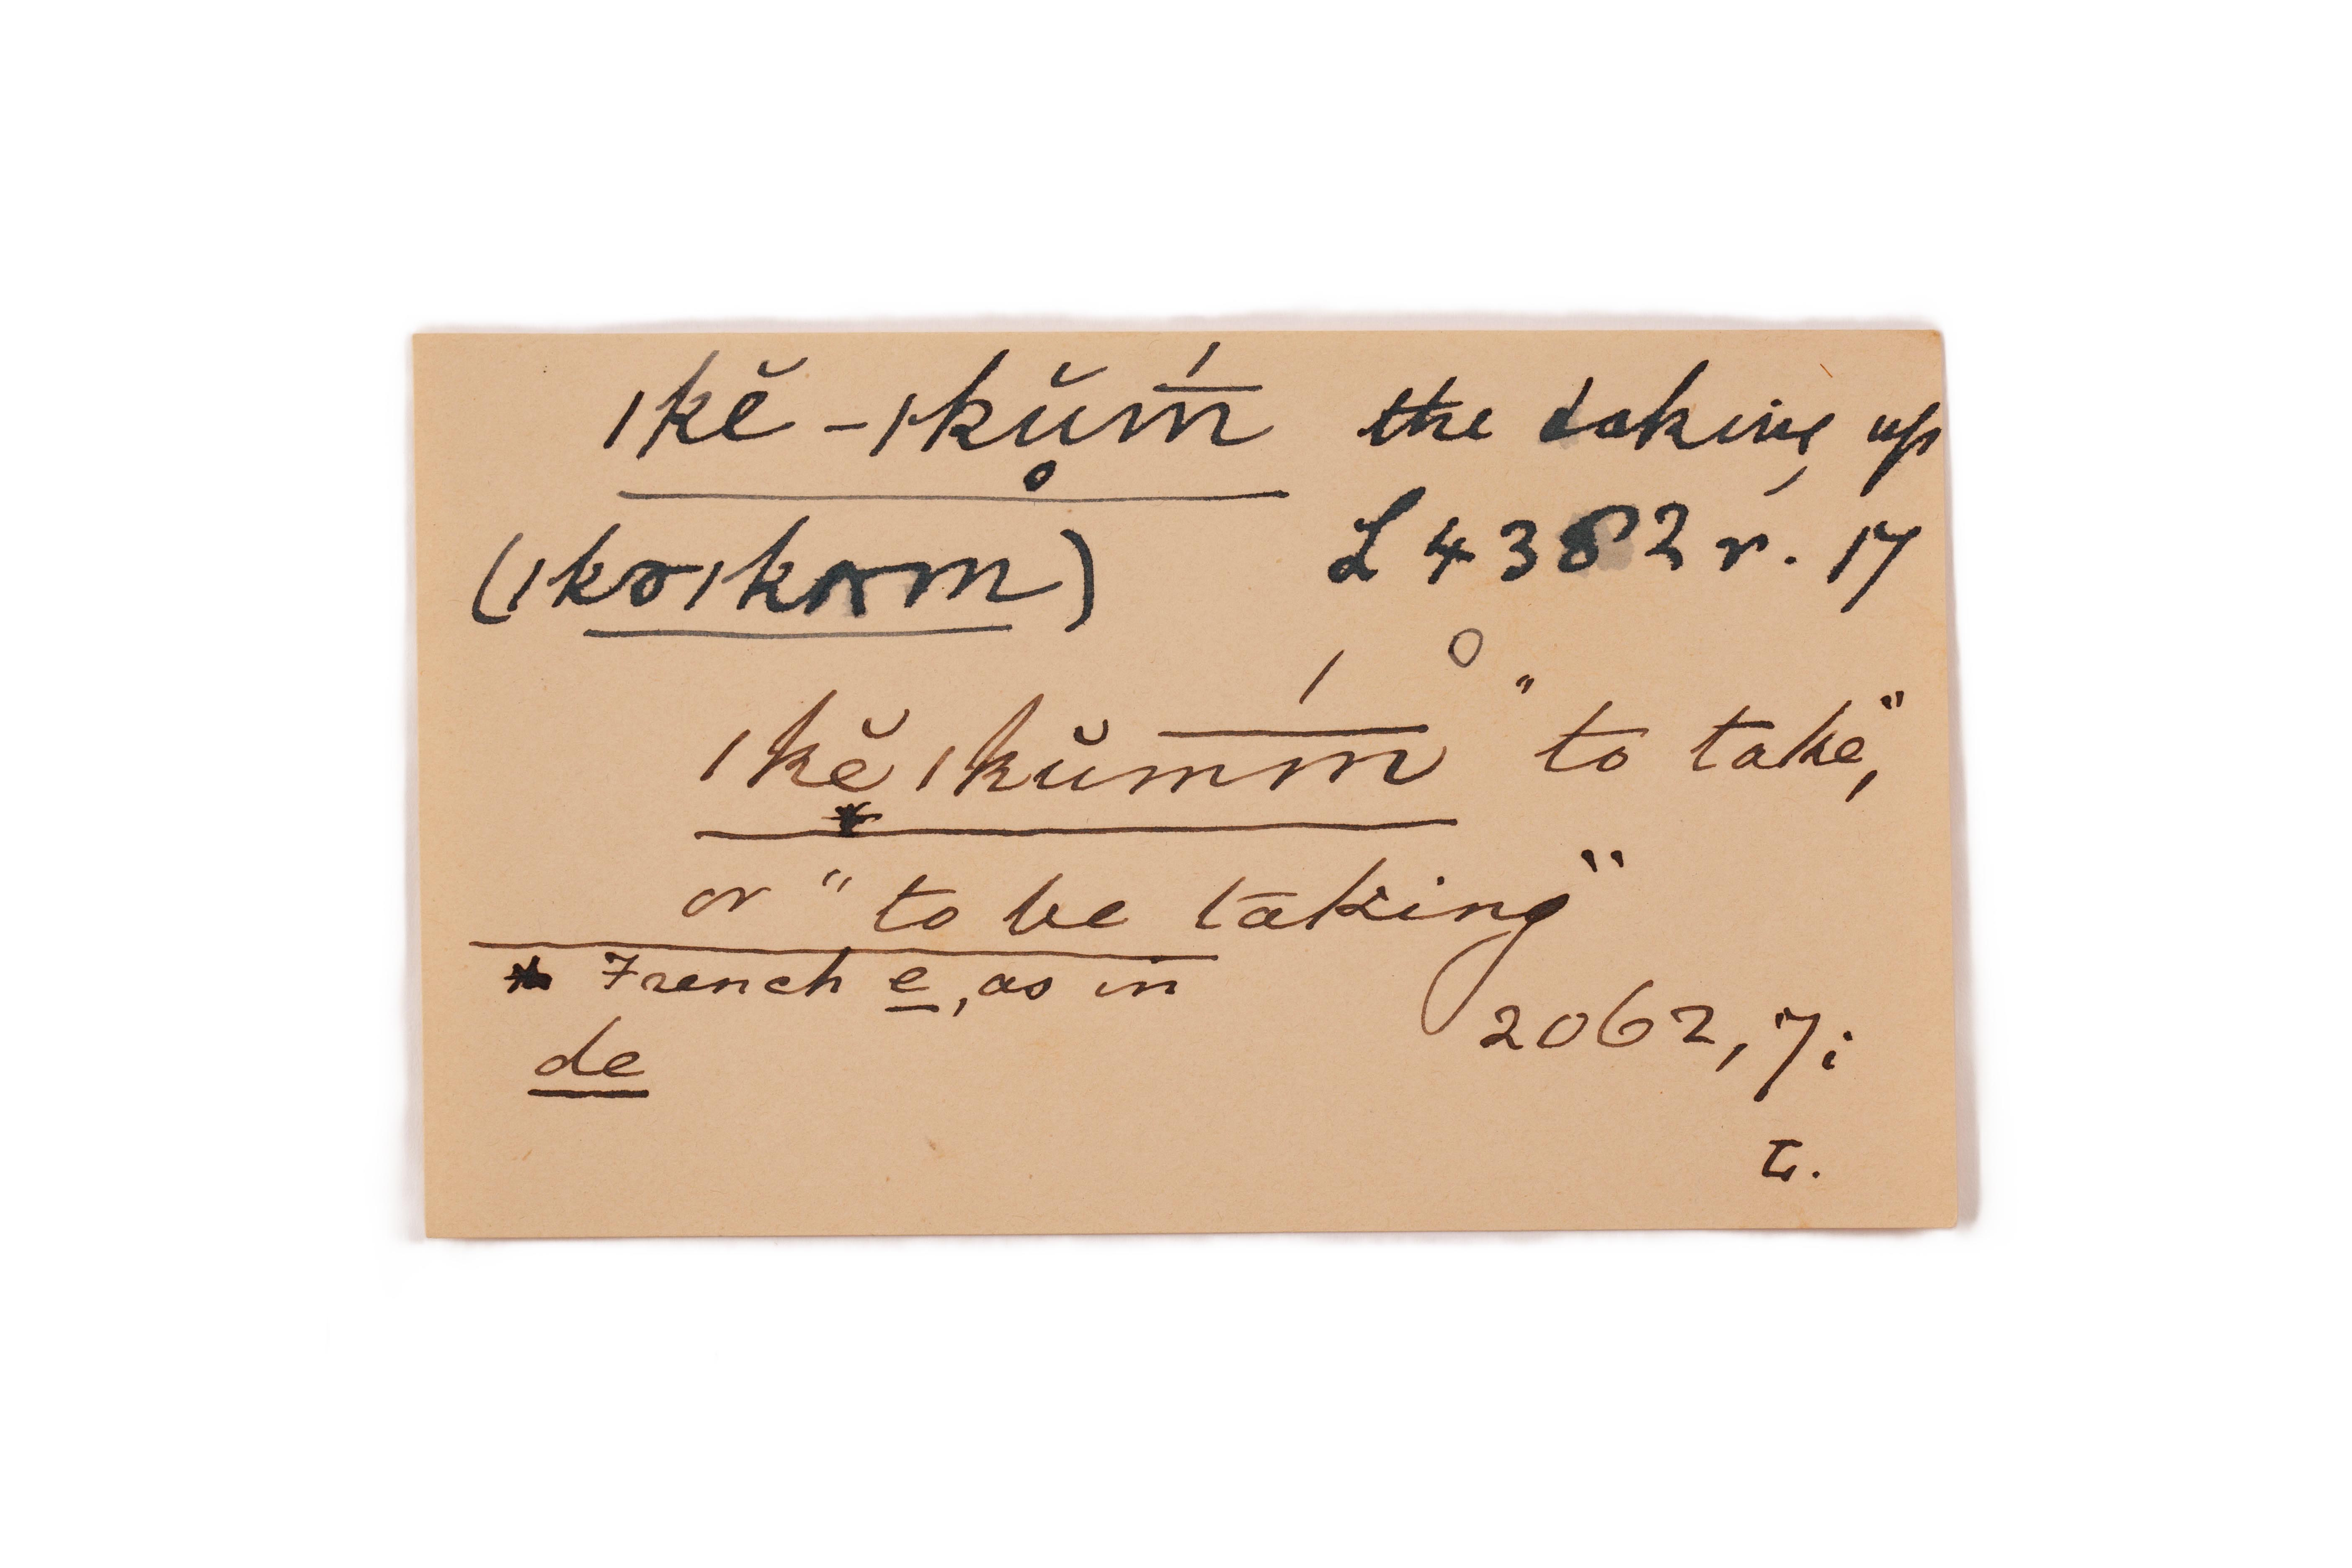 ıkĕ-ıkŭ̥m̄́ the taking up
(ıkɤıkʌm) L 4382 r. 17
ıkĕıkŭm̄m̄́ "to take,"
or "to be taking"
* French e, as in
de
2062, 7;